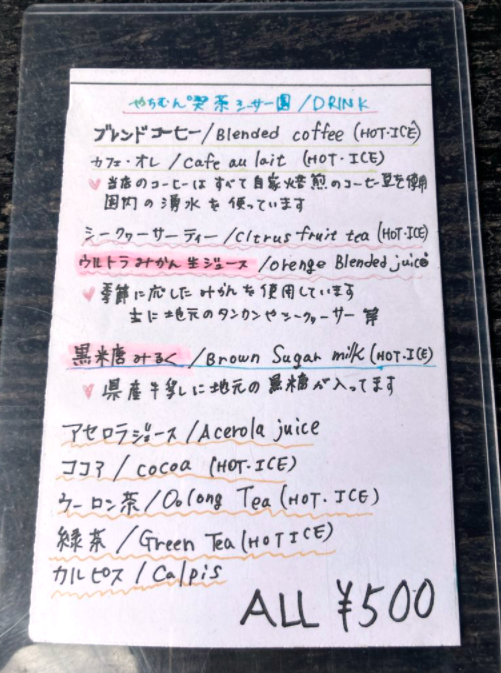 やちむん喫茶シーサー園/DRINK
ブレンドコーヒー/Blended coffee (HOT·ICE)
カフェ・オレ/Cafe au lait (HOT·ICE)
♥ 当店のコーヒーはすべて自家焙煎のコーヒー豆を使用
園内の湧水を使っています
シークヮーサーティー/Citrus fruit tea (HOT·ICE)
ウルトラみかん生ジュース/Orenge Blended juice
♥ 季節に応したみかんを使用しています
主に地元のタンカンやシークヮーサー等
黒糖みるく/Brown Sugar milk (HOT·ICE)
♥ 県産牛乳に地元の黒糖が入ってます
アセロラジュース/Acerola juice
ココア/cocoa (HOT-ICE)
ウーロン茶/Oolong Tea (HOT·ICE)
緑茶/Green Tea (HOT ICE)
カルピス/Calpis
ALL ¥500